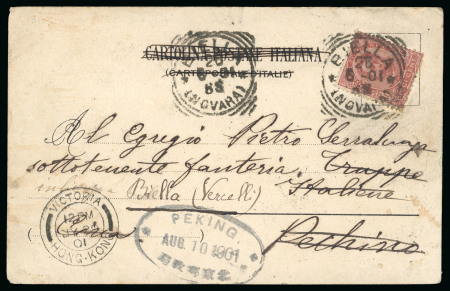 CARTOLINA POSTALE ITALIANA
(CARTE POSTALE D'ITALIE)
BIELLA
(NOVARA)
BIELLA
(NOVARA)
Al Egregio Pietro Serralunga
sottotenente fanteria Truppe
Italiane
Biella (Vercelli)
Pechino
VICTORIA
HONG-KONG
PEKING
AUG 10 1901